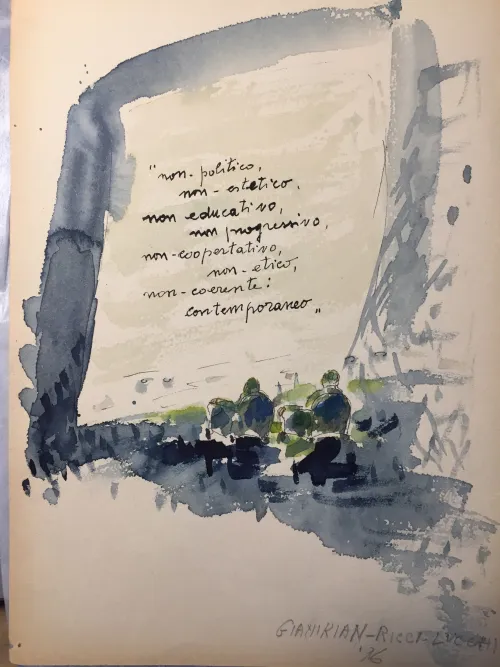 "non-politico,
non-estetico,
non educativo,
non progressivo,
non-cooperativo,
non-etico,
non-coerente:
contemporaneo"
GIANIKIAN-RICCI-LUCCHI
'96